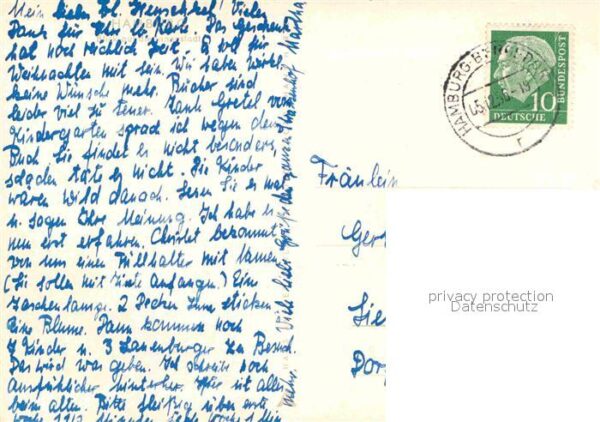 Mein liebes Frl. Henschkel! Vielen
Dank für Ihre l. Karte. Das Geschenk
hat noch reichlich Zeit. Es soll für
Weihnachten mit sein. Wir haben wirkl.
keine Wünsche mehr. Bücher sind
leider viel zu teuer. Tante Gretel vom
Kindergarten sprach ich wegen dem
Buch. Sie findet es nicht besonders,
schaden tät es nicht. Die Kinder
wären wild danach. Lesen Sie es mal
u. sagen Ihre Meinung. Ich habe es
nun erst erfahren. Christel bekommt
von uns einen Füllhalter mit Namen
(Sie sollen mit Tinte anfangen.) Eine
Taschenlampe. 2 Decken zum sticken
Eine Blume. Dann kommen noch
7 Kinder u. 3 Lauenburger zu Besuch.
Das wird was geben. Ich schreibe noch
ausführlicher hinterher. Hier ist alles
beim alten. Bitte fleißig üben erste
mehr. Viele liebe Grüße der ganzen
HAMBURG
05.12.
r
10
DEUTSCHE
BUNDESPOST
Fräulein
Ger
Lie
Dor
privacy protection
Datenschutz